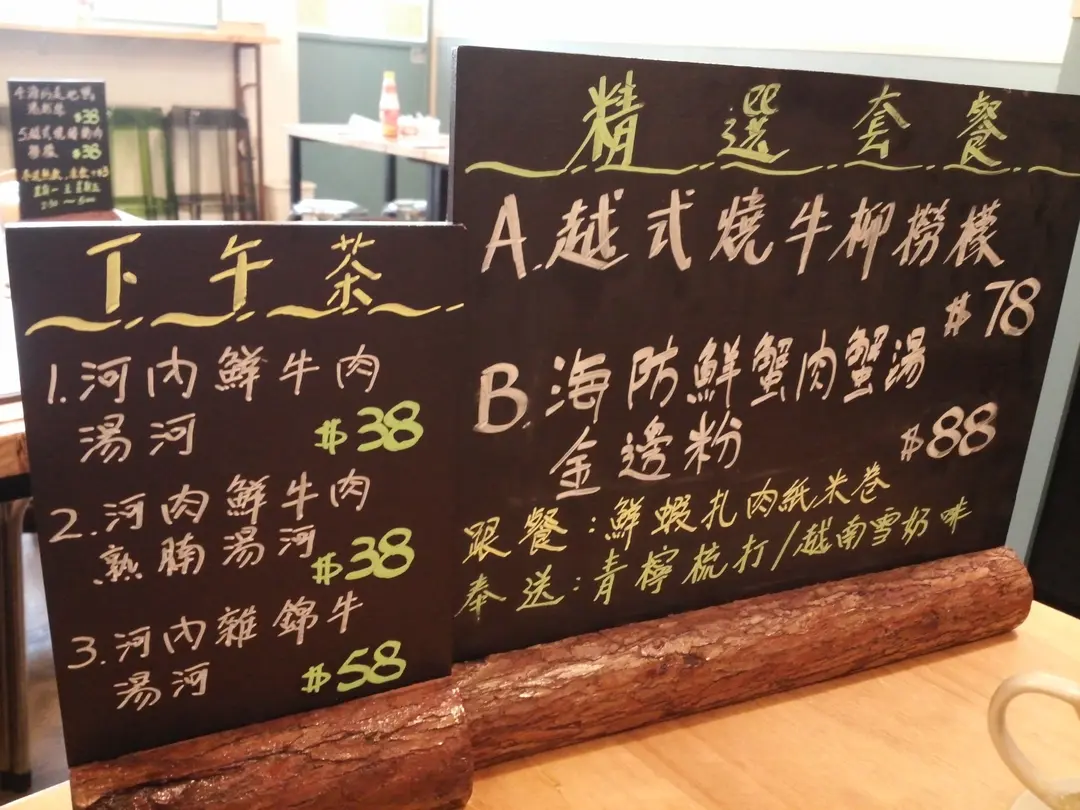 下午茶
1.河內鮮牛肉
湯河 $38
2.河肉鮮牛肉
熟腩湯河 $38
3.河內雜錦牛
湯河 $58
精選套餐
A.越式燒牛柳撈檬
$78
B.海防鮮蟹肉蟹湯
金邊粉 $88
跟餐:鮮蝦扎肉紙米卷
奉送:青檸梳打/越南雪奶啡
$38
5.越式燒豬頸肉
$38
$3